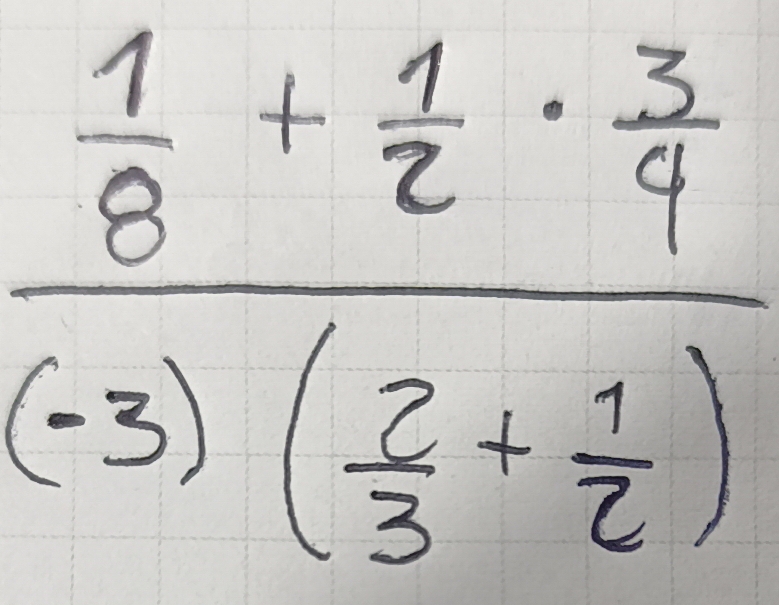 1/8 + 1/2 · 3/4
(-3) (2/3 + 1/2)